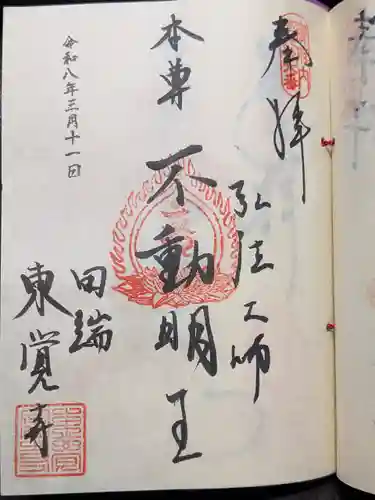 奉拝
弘法大師
本尊
不動明王
田端
東覚寺
令和八年三月十一日